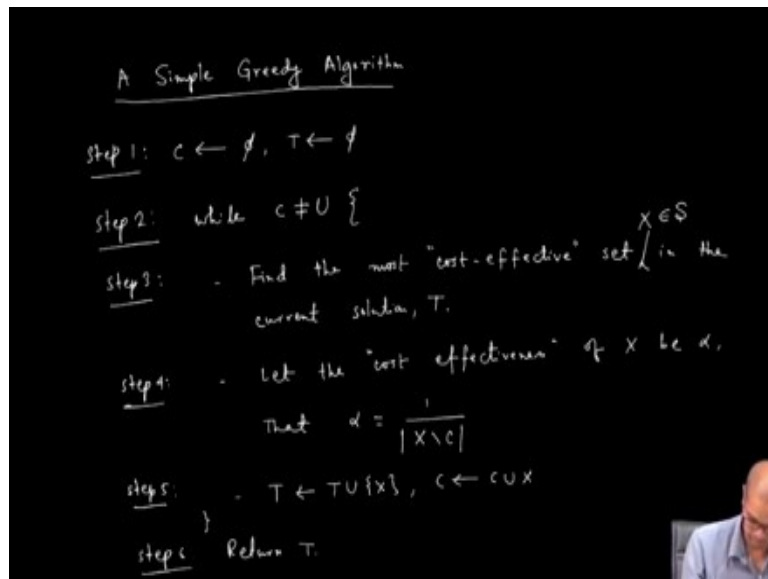 A Simple Greedy Algorithm
step 1: C ← ∅, T ← ∅
step 2: while C ≠ U {
X ∈ S
step 3: - Find the most "cost-effective" set in the
current solution, T.
step 4: - Let the "cost effectiveness" of X be α.
That α = 1 / |X \ C|
step 5: - T ← T ∪ {X}, C ← C ∪ X
}
step 6 Return T.